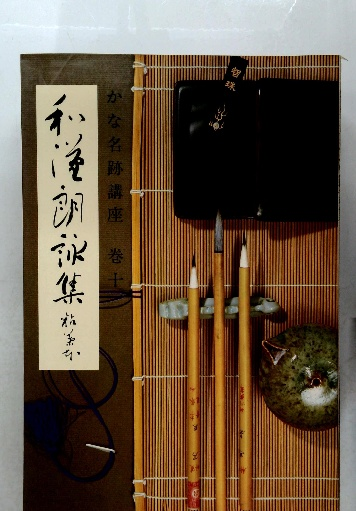 かな名跡講座 巻十
和漢朗詠集
粘葉本